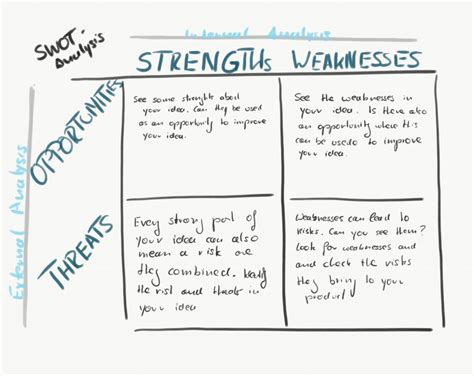 Internal Analysis
SWOT-
Analysis
STRENGTHs WEAKNESSES
External Analysis
OPPORTUNITIES
See some strengths about
your idea. Can they be used
as an opportunity to improve
your idea.
See the weaknesses in
your idea. Is there also
an opportunity where this
can be used to improve
your idea.
THREATS
Every strong part of
your idea can also
mean a risk are
they combined.
the risk and threats in
your idea
Weaknesses can lead to
risks. Can you see them?
Look for weaknesses and
and check the risks
they bring to your
product